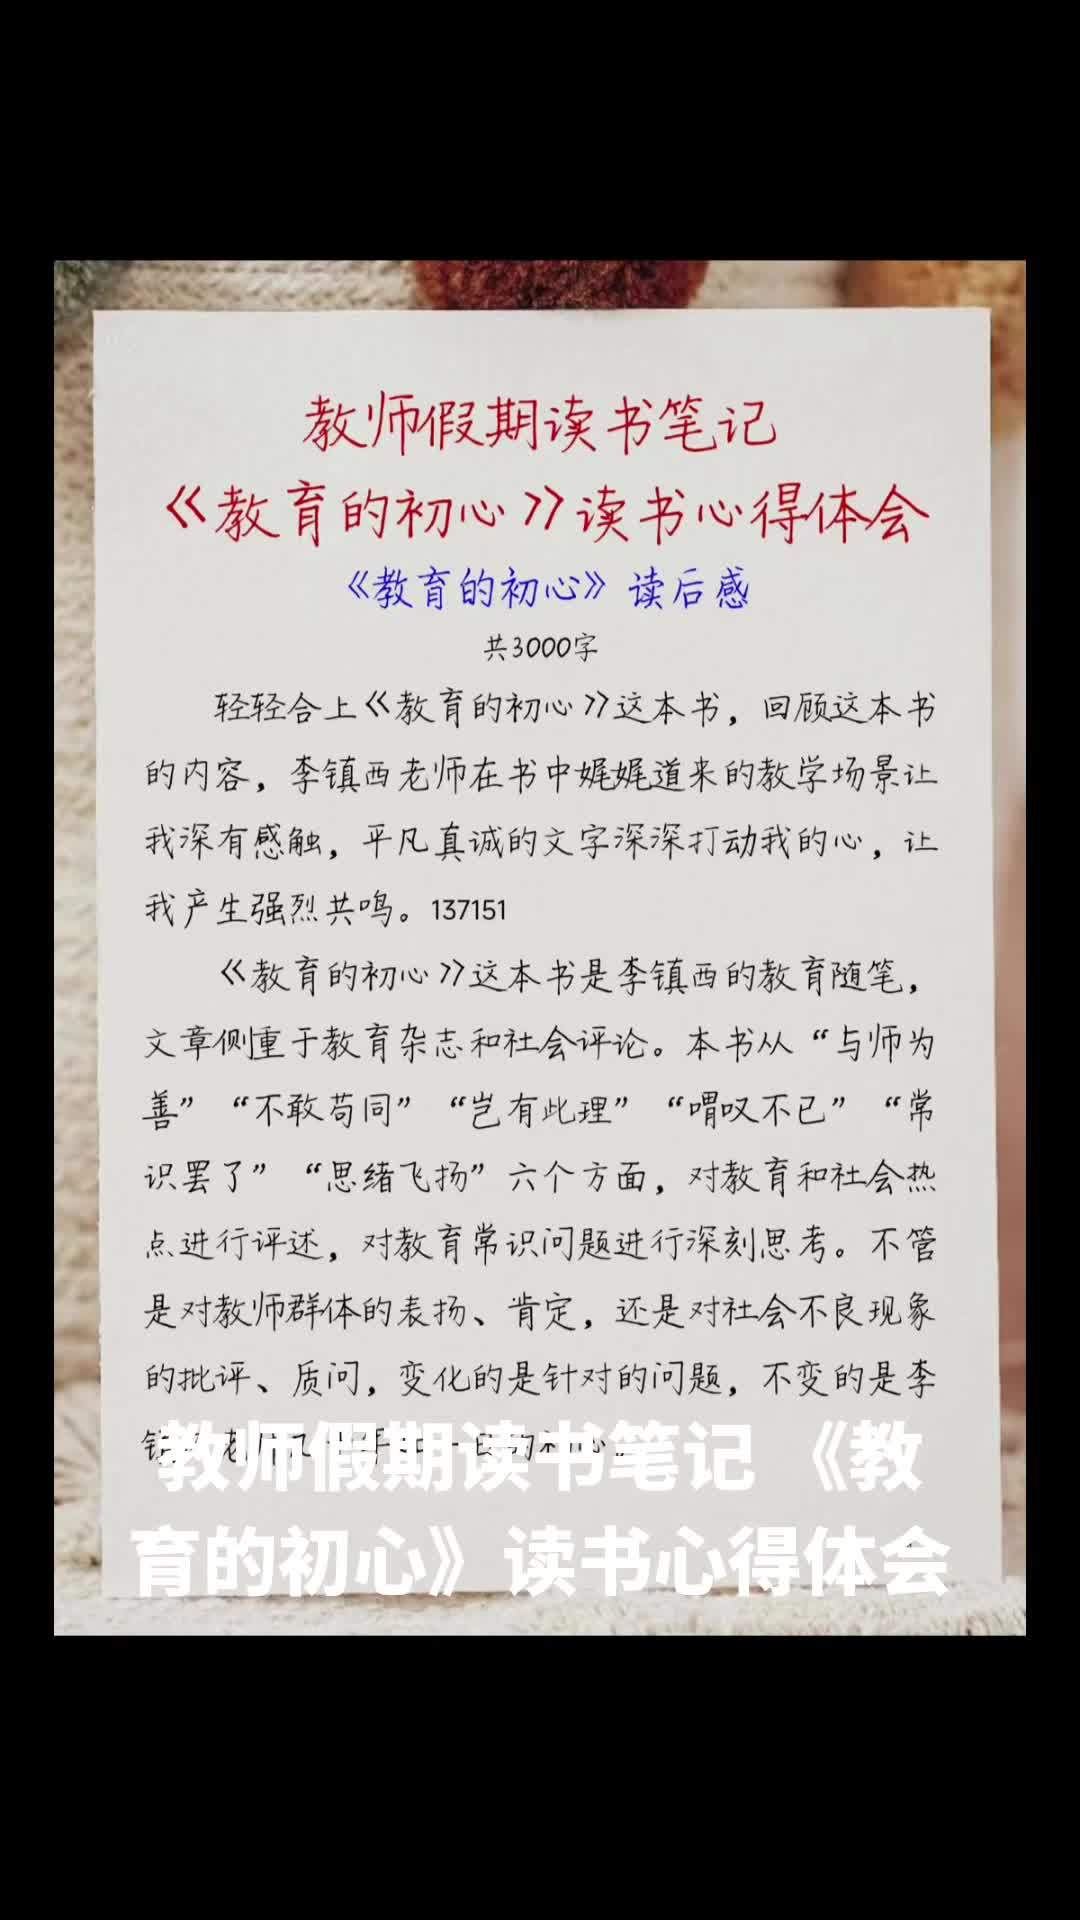 教师假期读书笔记
《教育的初心》读书心得体会
《教育的初心》读后感
共3000字
轻轻合上《教育的初心》这本书，回顾这本书
的内容，李镇西老师在书中娓娓道来的教学场景让
我深有感触，平凡真诚的文字深深打动我的心，让
我产生强烈共鸣。137151
《教育的初心》这本书是李镇西的教育随笔，
文章侧重于教育杂志和社会评论。本书从“与师为
善”“不敢苟同”“岂有此理”“喟叹不已”“常
识罢了”“思绪飞扬”六个方面，对教育和社会热
点进行评述，对教育常识问题进行深刻思考。不管
是对教师群体的表扬、肯定，还是对社会不良现象
的批评、质问，变化的是针对的问题，不变的是李
教师假期读书笔记 《教
育的初心》读书心得体会